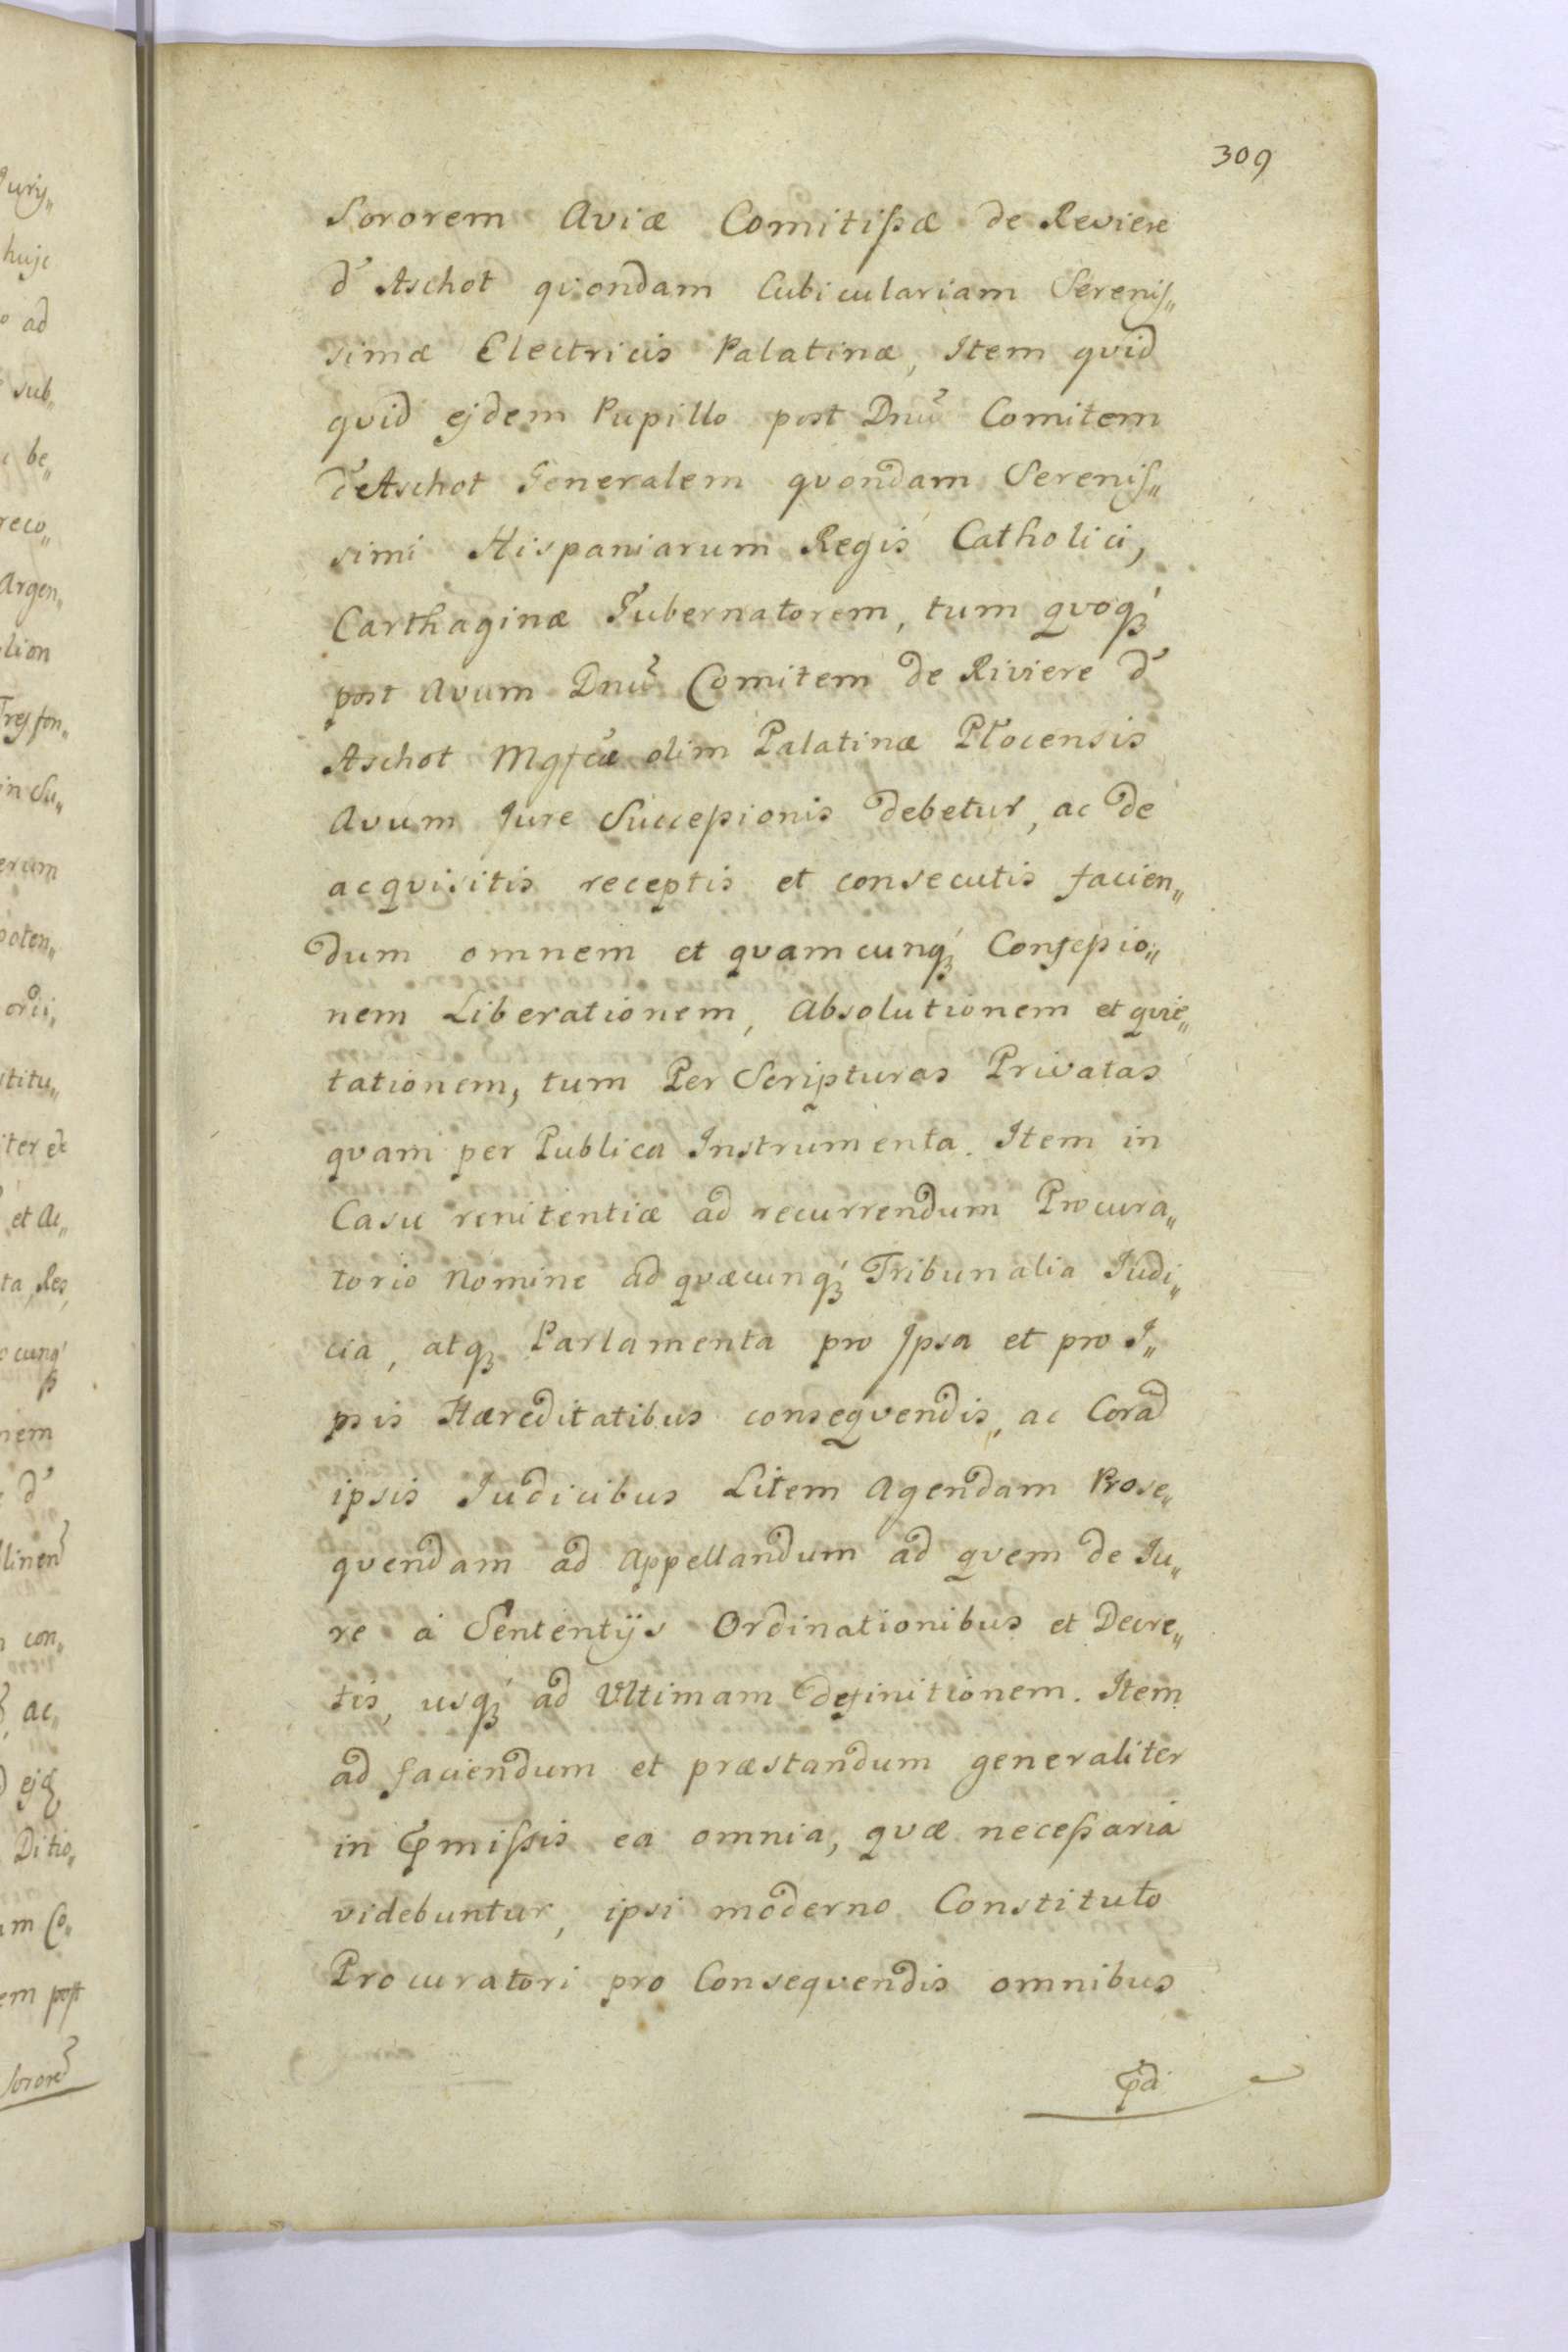 309
Sororem Aviæ Comitißæ de Reviere
d' Aschot quondam Cubiculariam Serenis„
simæ Electricis Palatinæ, Item quid
quid ejdem Pupillo post Dnũ Comitem
d'Aschot Generalem quondam Serenis„
simi Hispaniarum Regis Catholici,
Carthaginæ Gubernatorem, tum quoq́
post Avum Dnũ Comitem de Riviere d'
Aschot Mgfcæ olim Palatinæ Płocensis
Avum Jure Succeßionis debetur, ac de
acquisitis receptis et consecutis facien„
dum omnem et quamcunq́ Conseßio„
nem Liberationem, Absolutionem et quie„
tationem, tum Per Scripturas Privatas
quam per Publica Instrumenta. Item in
Casu renitentiæ ad recurrendum Procura„
torio Nomine ad quæcunq́ Tribunalia Judi„
cia, atq Parlamenta pro Jpsa et pro I„
psis Hæreditatibus consequendis, ac Corã
ipsis Judicibus Litem Agendam Prose„
quendam ad Appellandum ad quem de Ju„
re à Sententijs Ordinationibus et Decre„
tis, usq́ ad Ultimam definitionem. Item
ad faciendum et præstandum generaliter
in Pmißis ea omnia, quæ neceßaria
videbuntur, ipsi moderno Constituto
Procuratori pro Consequendis omnibus
Pdi
ury„
hujc
ad
sub„
be„
reco„
Argen„
lion
in Su„
erum
poten„
stitu„
iter et
et Ac„
ta, Res„
cunq́
nem
d'
con„
ac„
Ditio„
um Co„
em post
Sororẽ